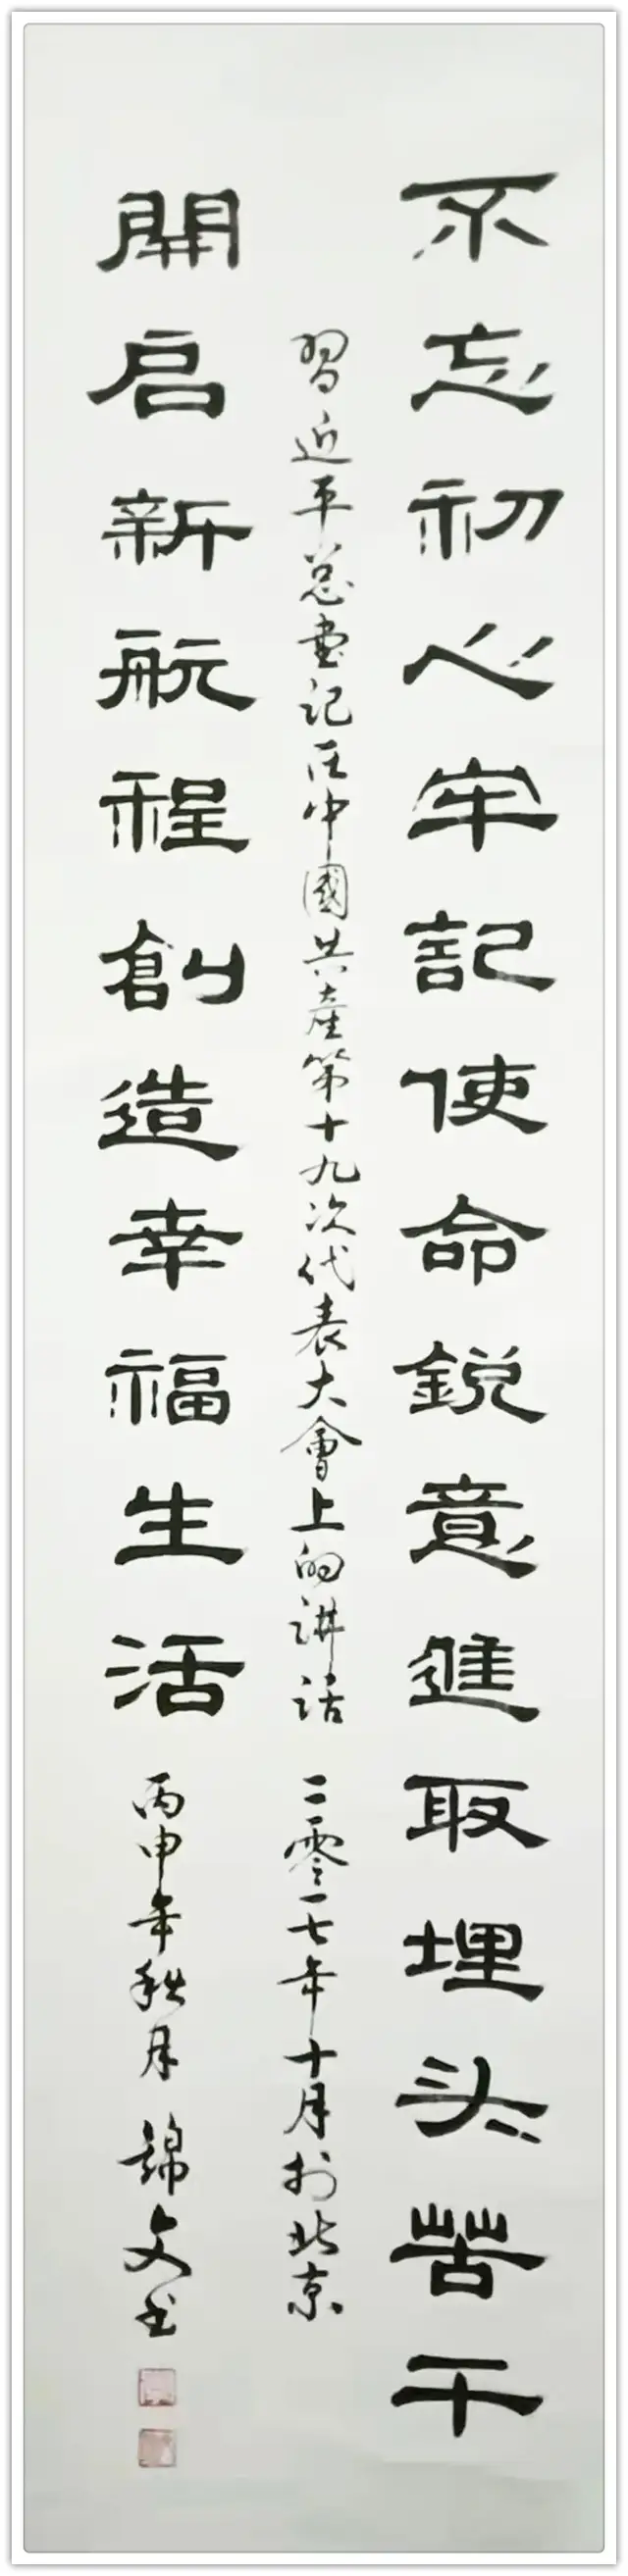 不忘初心牢記使命鋭意進取埋头苦干
習近平总書记在中國共産第十九次代表大會上的讲话 二零一七年十月於北京
開启新航程創造幸福生活 丙申年秋月 錦文书